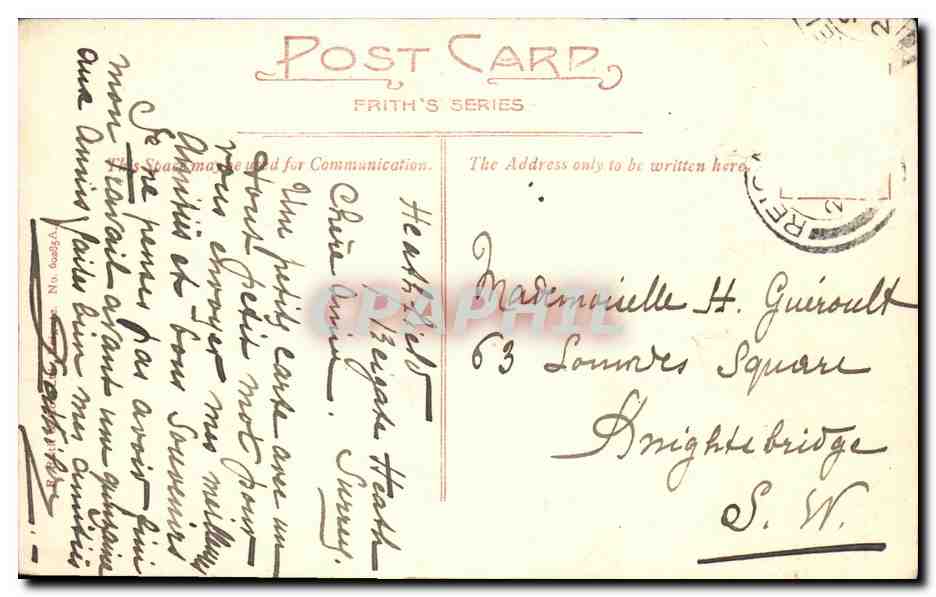 POST CARD
FRITH'S SERIES
This Space may be used for Communication.
The Address only to be written here.
Heathfield
Reigate Heath
Surrey
Chère Amie.
Une petite carte avec un
tous petit mot pour
vous envoyer mes meilleurs
Amitiés et bons Souvenirs
Je ne penses pas avoir fini
mon travail avant une quinzaine
aux Amies faites bien mes amitiés
Mademoiselle H. Guéroult
63 Square
Knightsbridge
S. W.
No. 60285A.
CPAPHIL
REIG